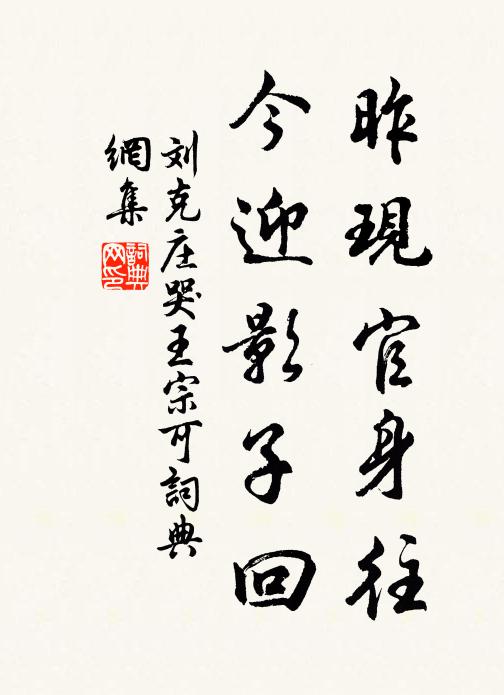 昨現官身往
今迎影子回
刘克庄哭王宗可詞典
網集
詞典网印